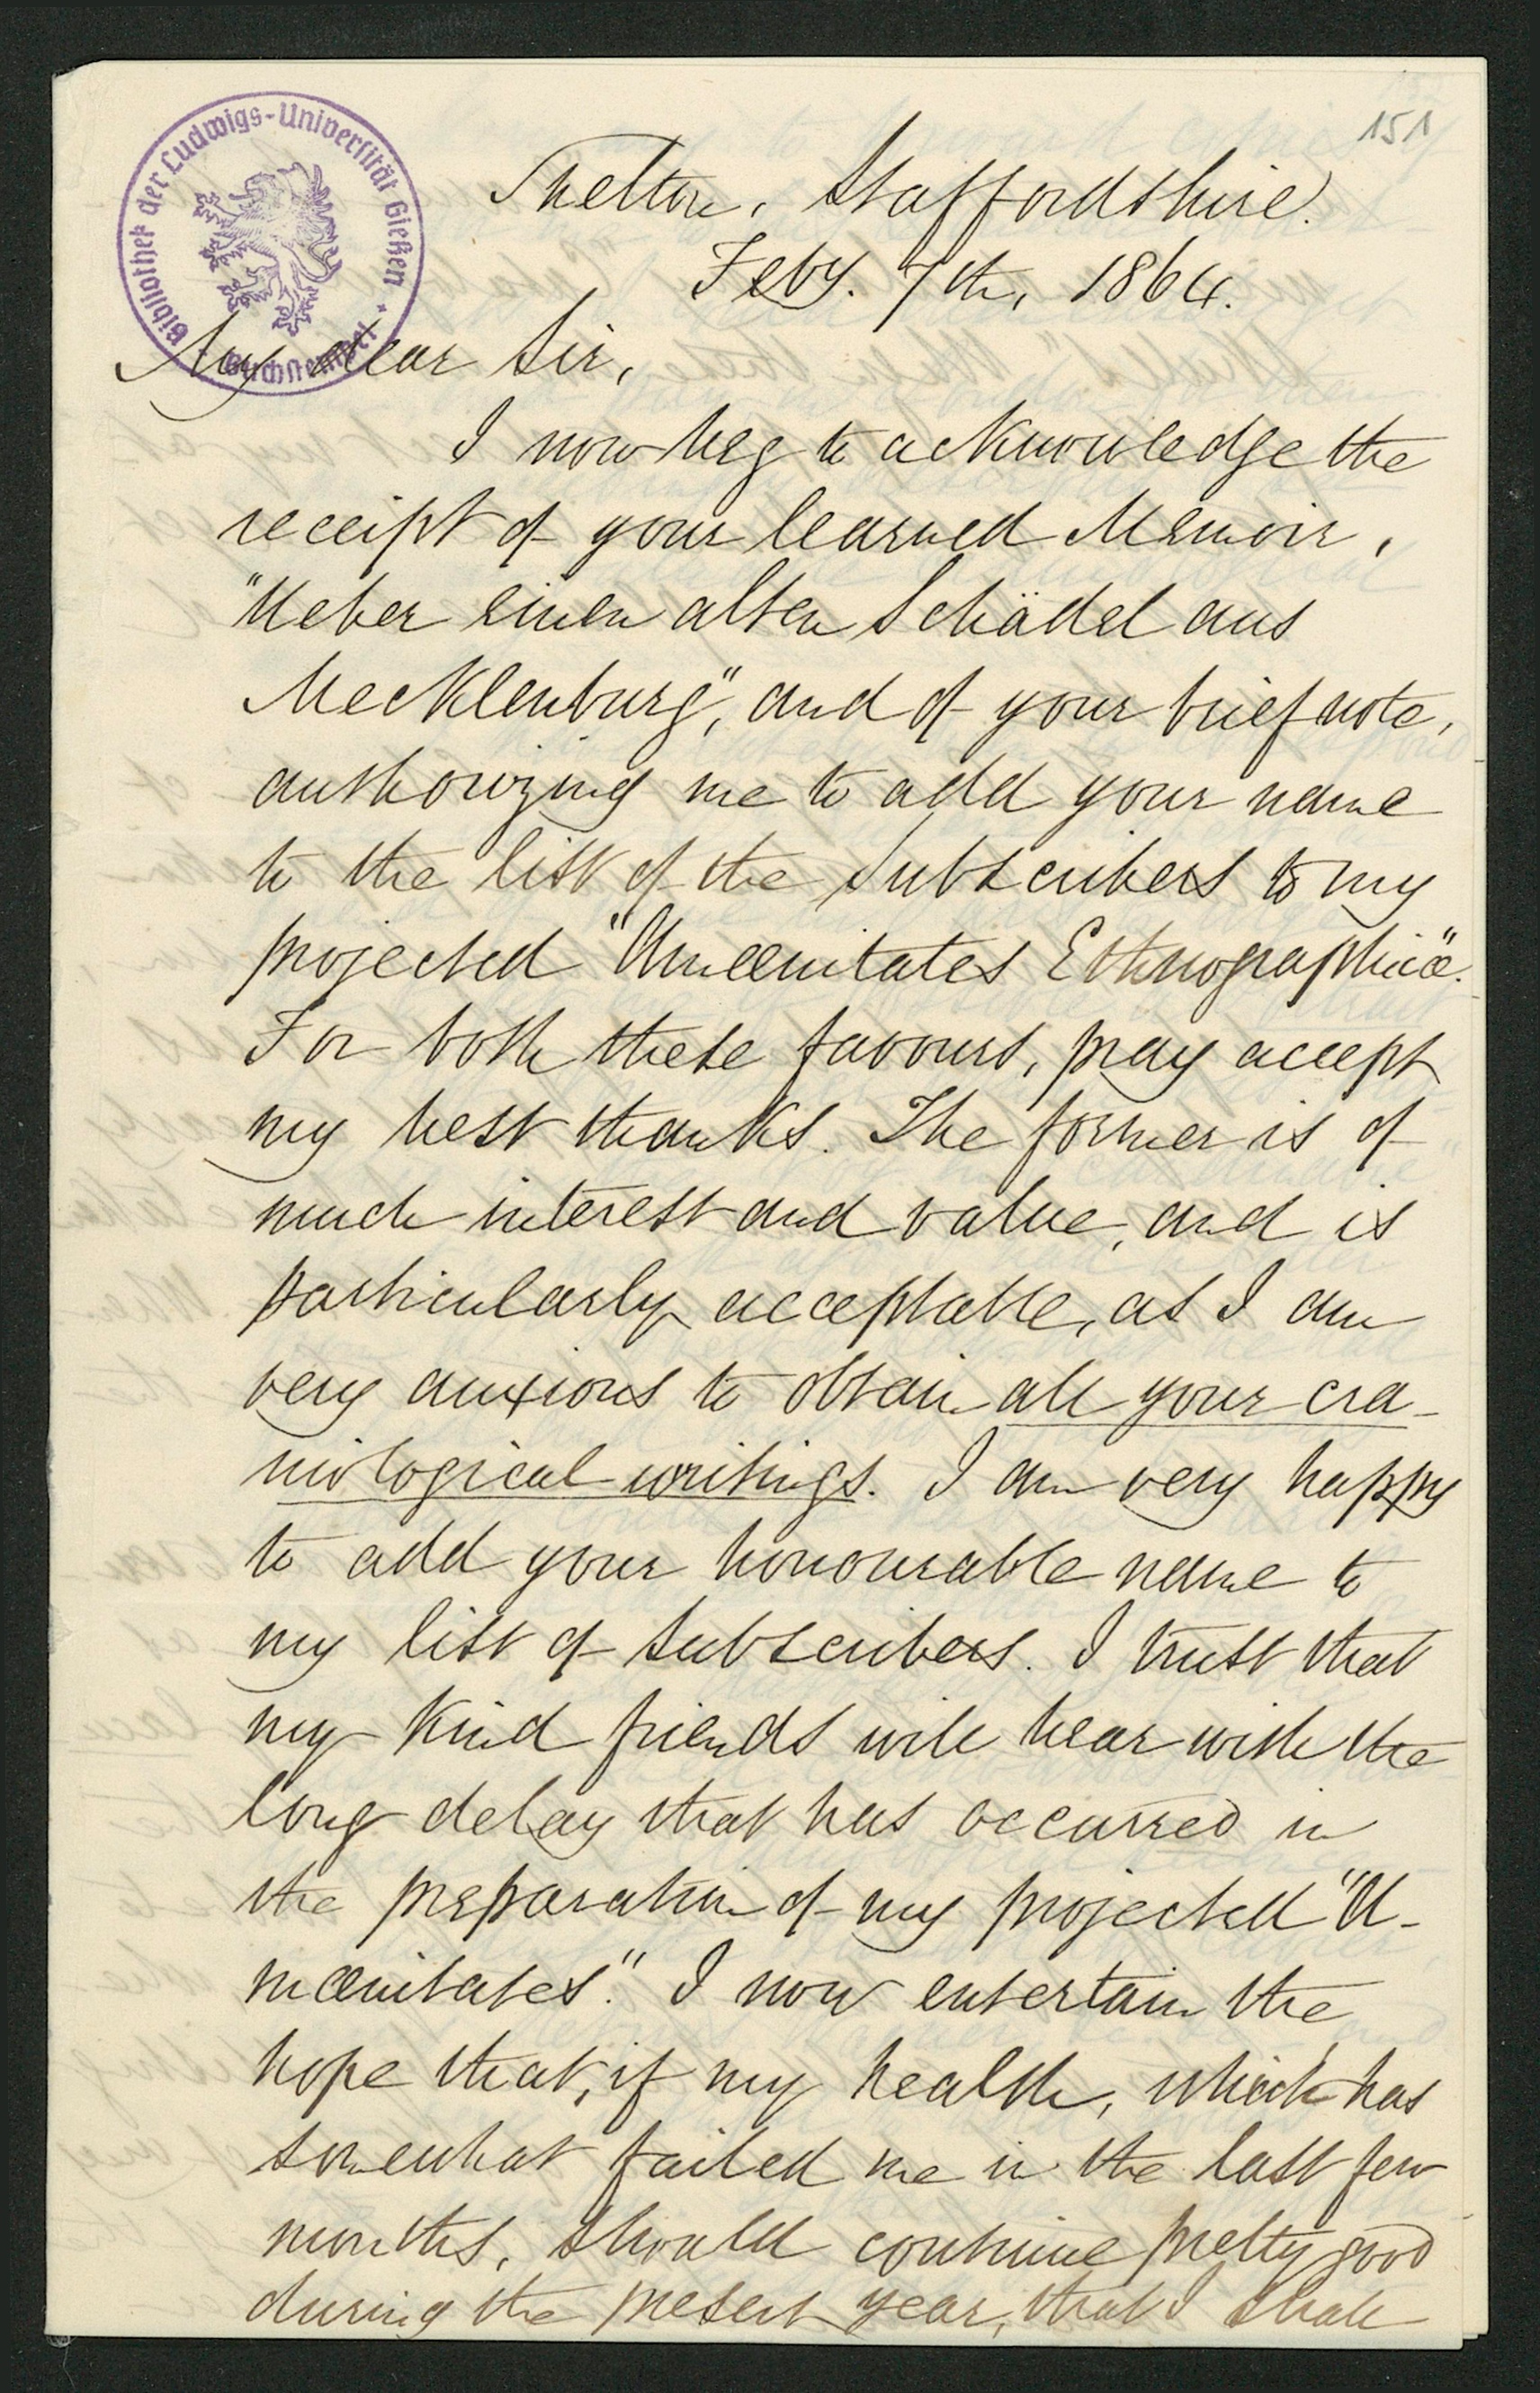 151
Bibliothek der Ludwigs-Universität Gießen
Shelton, Staffordshire.
Feby. 7th, 1864.
My dear Sir,
I now beg to acknowledge the
receipt of your learned Memoir,
"Ueber einen alten Schädel aus
Mecklenburg", and of your brief note,
authorizing me to add your name
to the list of the Subscribers to my
projected "Amœnitates Ethnographicæ".
For both these favours, pray accept
my best thanks. The former is of
much interest and value, and is
particularly acceptable, as I am
very anxious to obtain all your cra-
niological writings. I am very happy
to add your honourable name to
my list of Subscribers. I trust that
my kind friends will bear with the
long delay that has occurred in
the preparation of my projected "A-
mœnitates". I now entertain the
hope that, if my health, which has
somewhat failed me in the last few
months, should continue pretty good
during the present year, that I shall